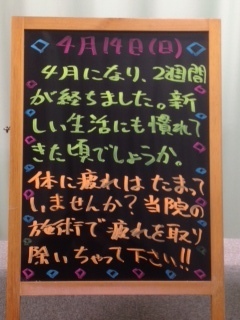 4月14日(日)
4月になり、2週間
が経ちました。新
しい生活にも慣れて
きた頃でしょうか。
体に疲れは たまって
しませんか？当院の
施術で疲れを取り
除いちゃって下さい!!